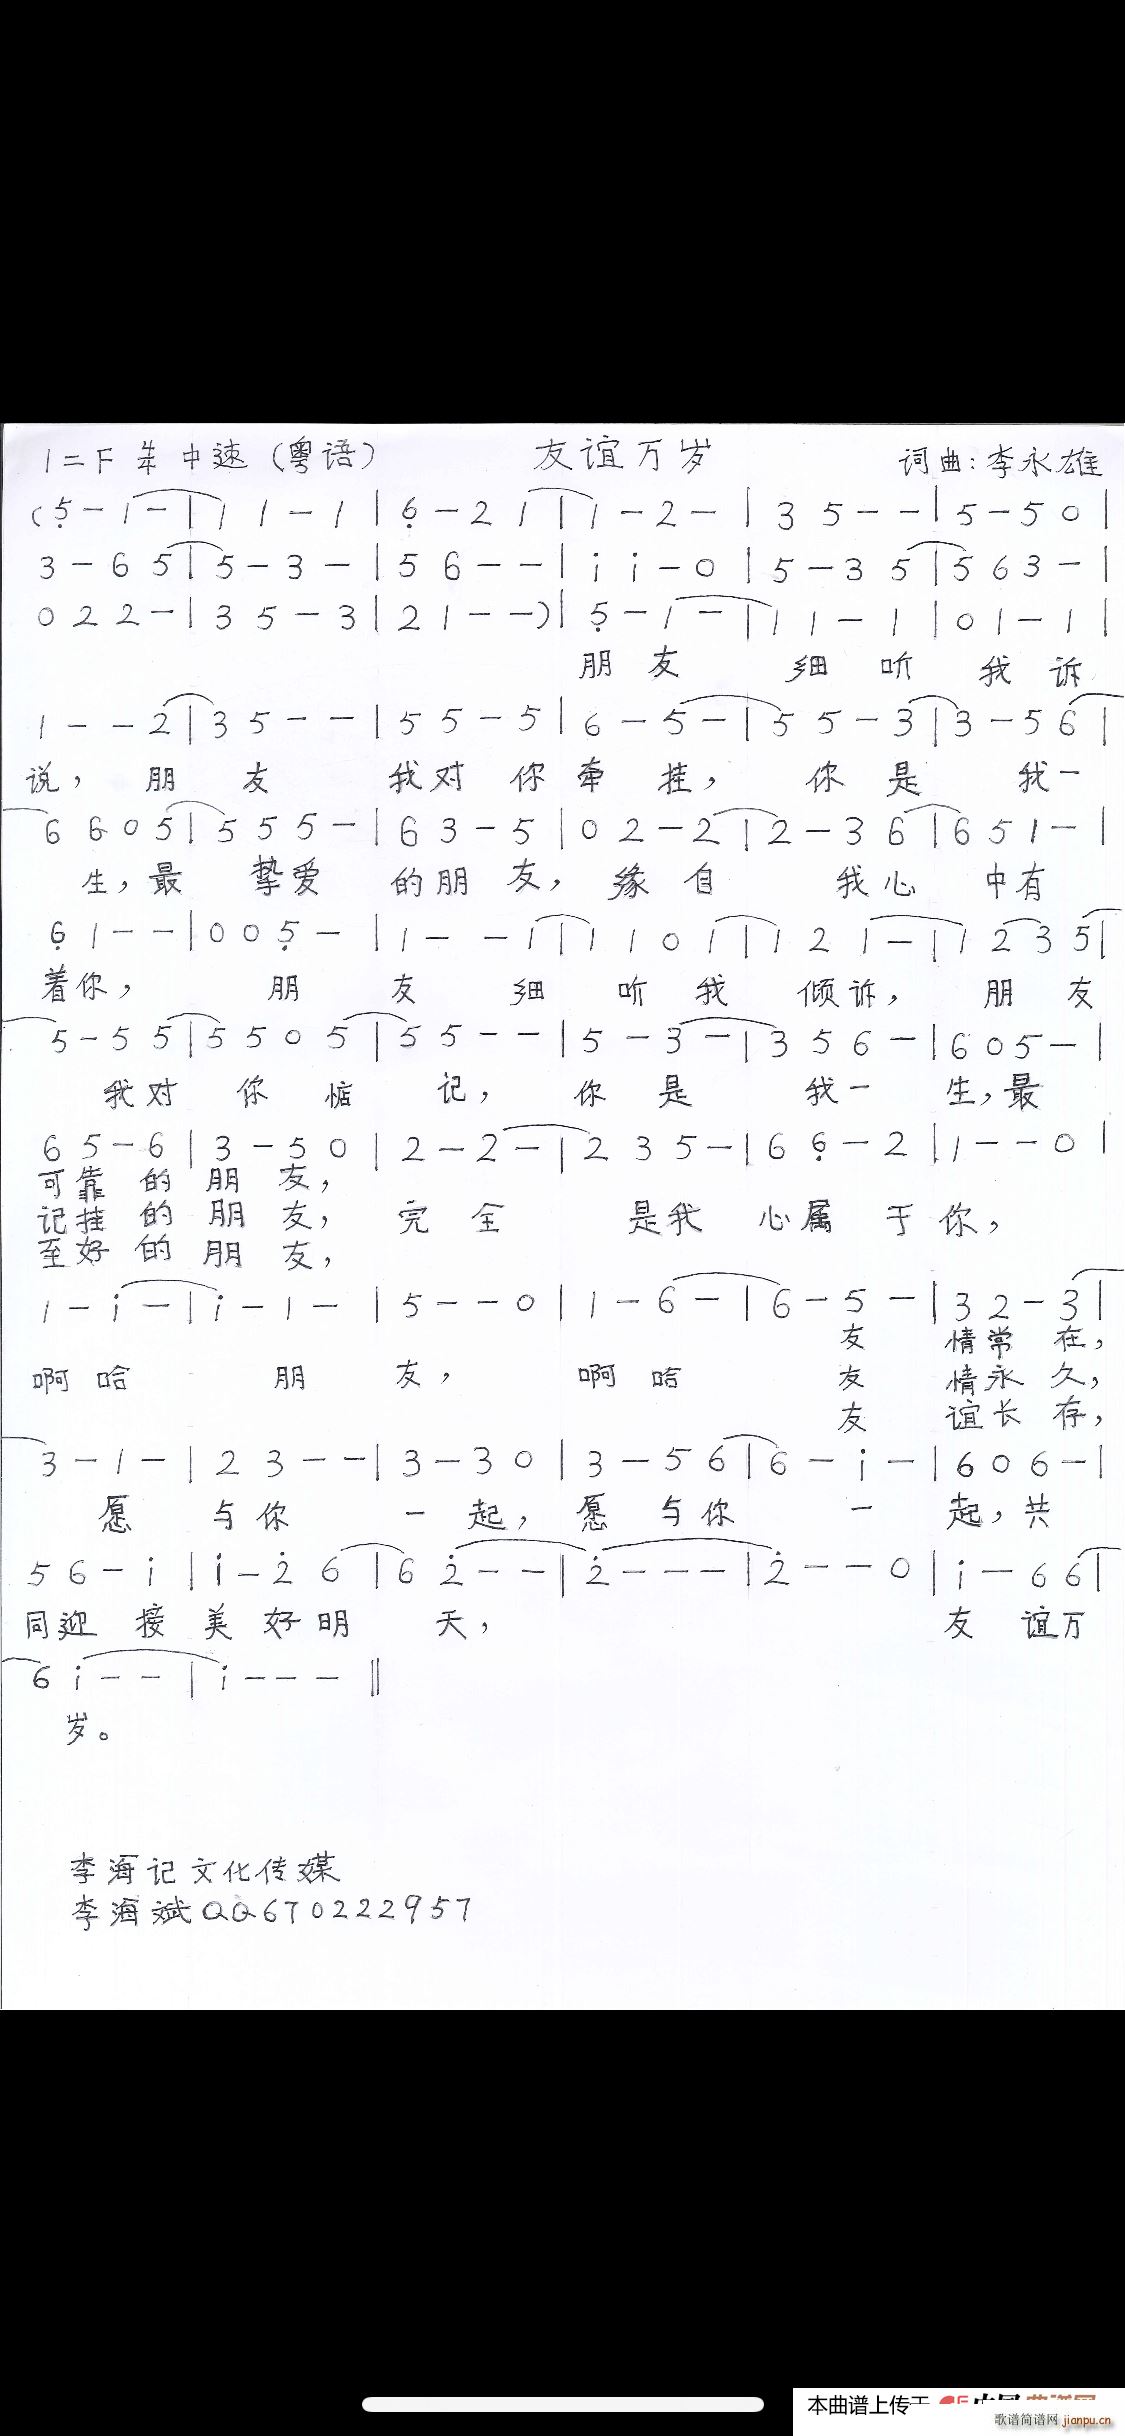 1=F 4/4 中速（粤语） 友谊万岁 词曲：李永雄
(5̣ - 1 - | 1 1 - 1 | 6̣ - 2 1 | 1 - 2 - | 3 5 - - | 5 - 5 0 |
3 - 6 5 | 5 - 3 - | 5 6 - - | i i - 0 | 5 - 3 5 | 5 6 3 - |
0 2 2 - | 3 5 - 3 | 2 1 - -) | 5̣ - 1 - | 1 1 - 1 | 0 1 - 1 |
朋 友 细 听 我 诉
1 - - 2 | 3 5 - - | 5 5 - 5 | 6 - 5 - | 5 5 - 3 | 3 - 5 6 |
说， 朋 友 我 对 你 牵 挂， 你 是 我 一
6 6 0 5 | 5 5 5 - | 6 3 - 5 | 0 2 - 2 | 2 - 3 6 | 6 5 1 - |
生，最 挚 爱 的 朋 友， 缘 自 我 心 中 有
6̣ 1 - - | 0 0 5̣ - | 1 - - 1 | 1 1 0 1 | 1 2 1 - | 1 2 3 5 |
着 你， 朋 友 细 听 我 倾 诉， 朋 友
5 - 5 5 | 5 5 0 5 | 5 5 - - | 5 - 3 - | 3 5 6 - | 6 0 5 - |
我 对 你 惦 记， 你 是 我 一 生，最
6 5 - 6 | 3 - 5 0 | 2 - 2 - | 2 3 5 - | 6 6̣ - 2 | 1 - - 0 |
可 靠 的 朋 友，
记 挂 的 朋 友， 完 全 是 我 心 属 于 你，
至 好 的 朋 友，
1 - i - | i - 1 - | 5 - - 0 | 1 - 6 - | 6 - 5 - | 3 2 - 3 |
友 情 常 在，
啊 哈 朋 友， 啊 哈 友 情 永 久，
友 谊 长 存，
3 - 1 - | 2 3 - - | 3 - 3 0 | 3 - 5 6 | 6 - i - | 6 0 6 - |
愿 与 你 一 起， 愿 与 你 一 起，共
5 6 - i | i - 2̇ 6 | 6 2̇ - - | 2̇ - - - | 2̇ - - 0 | i - 6 6 |
同 迎 接 美 好 明 天， 友 谊 万
6 i - - | i - - - ‖
岁。
李海记文化传媒
李海斌QQ670222957
本曲谱上传于
歌谱简谱网 jianpu.cn